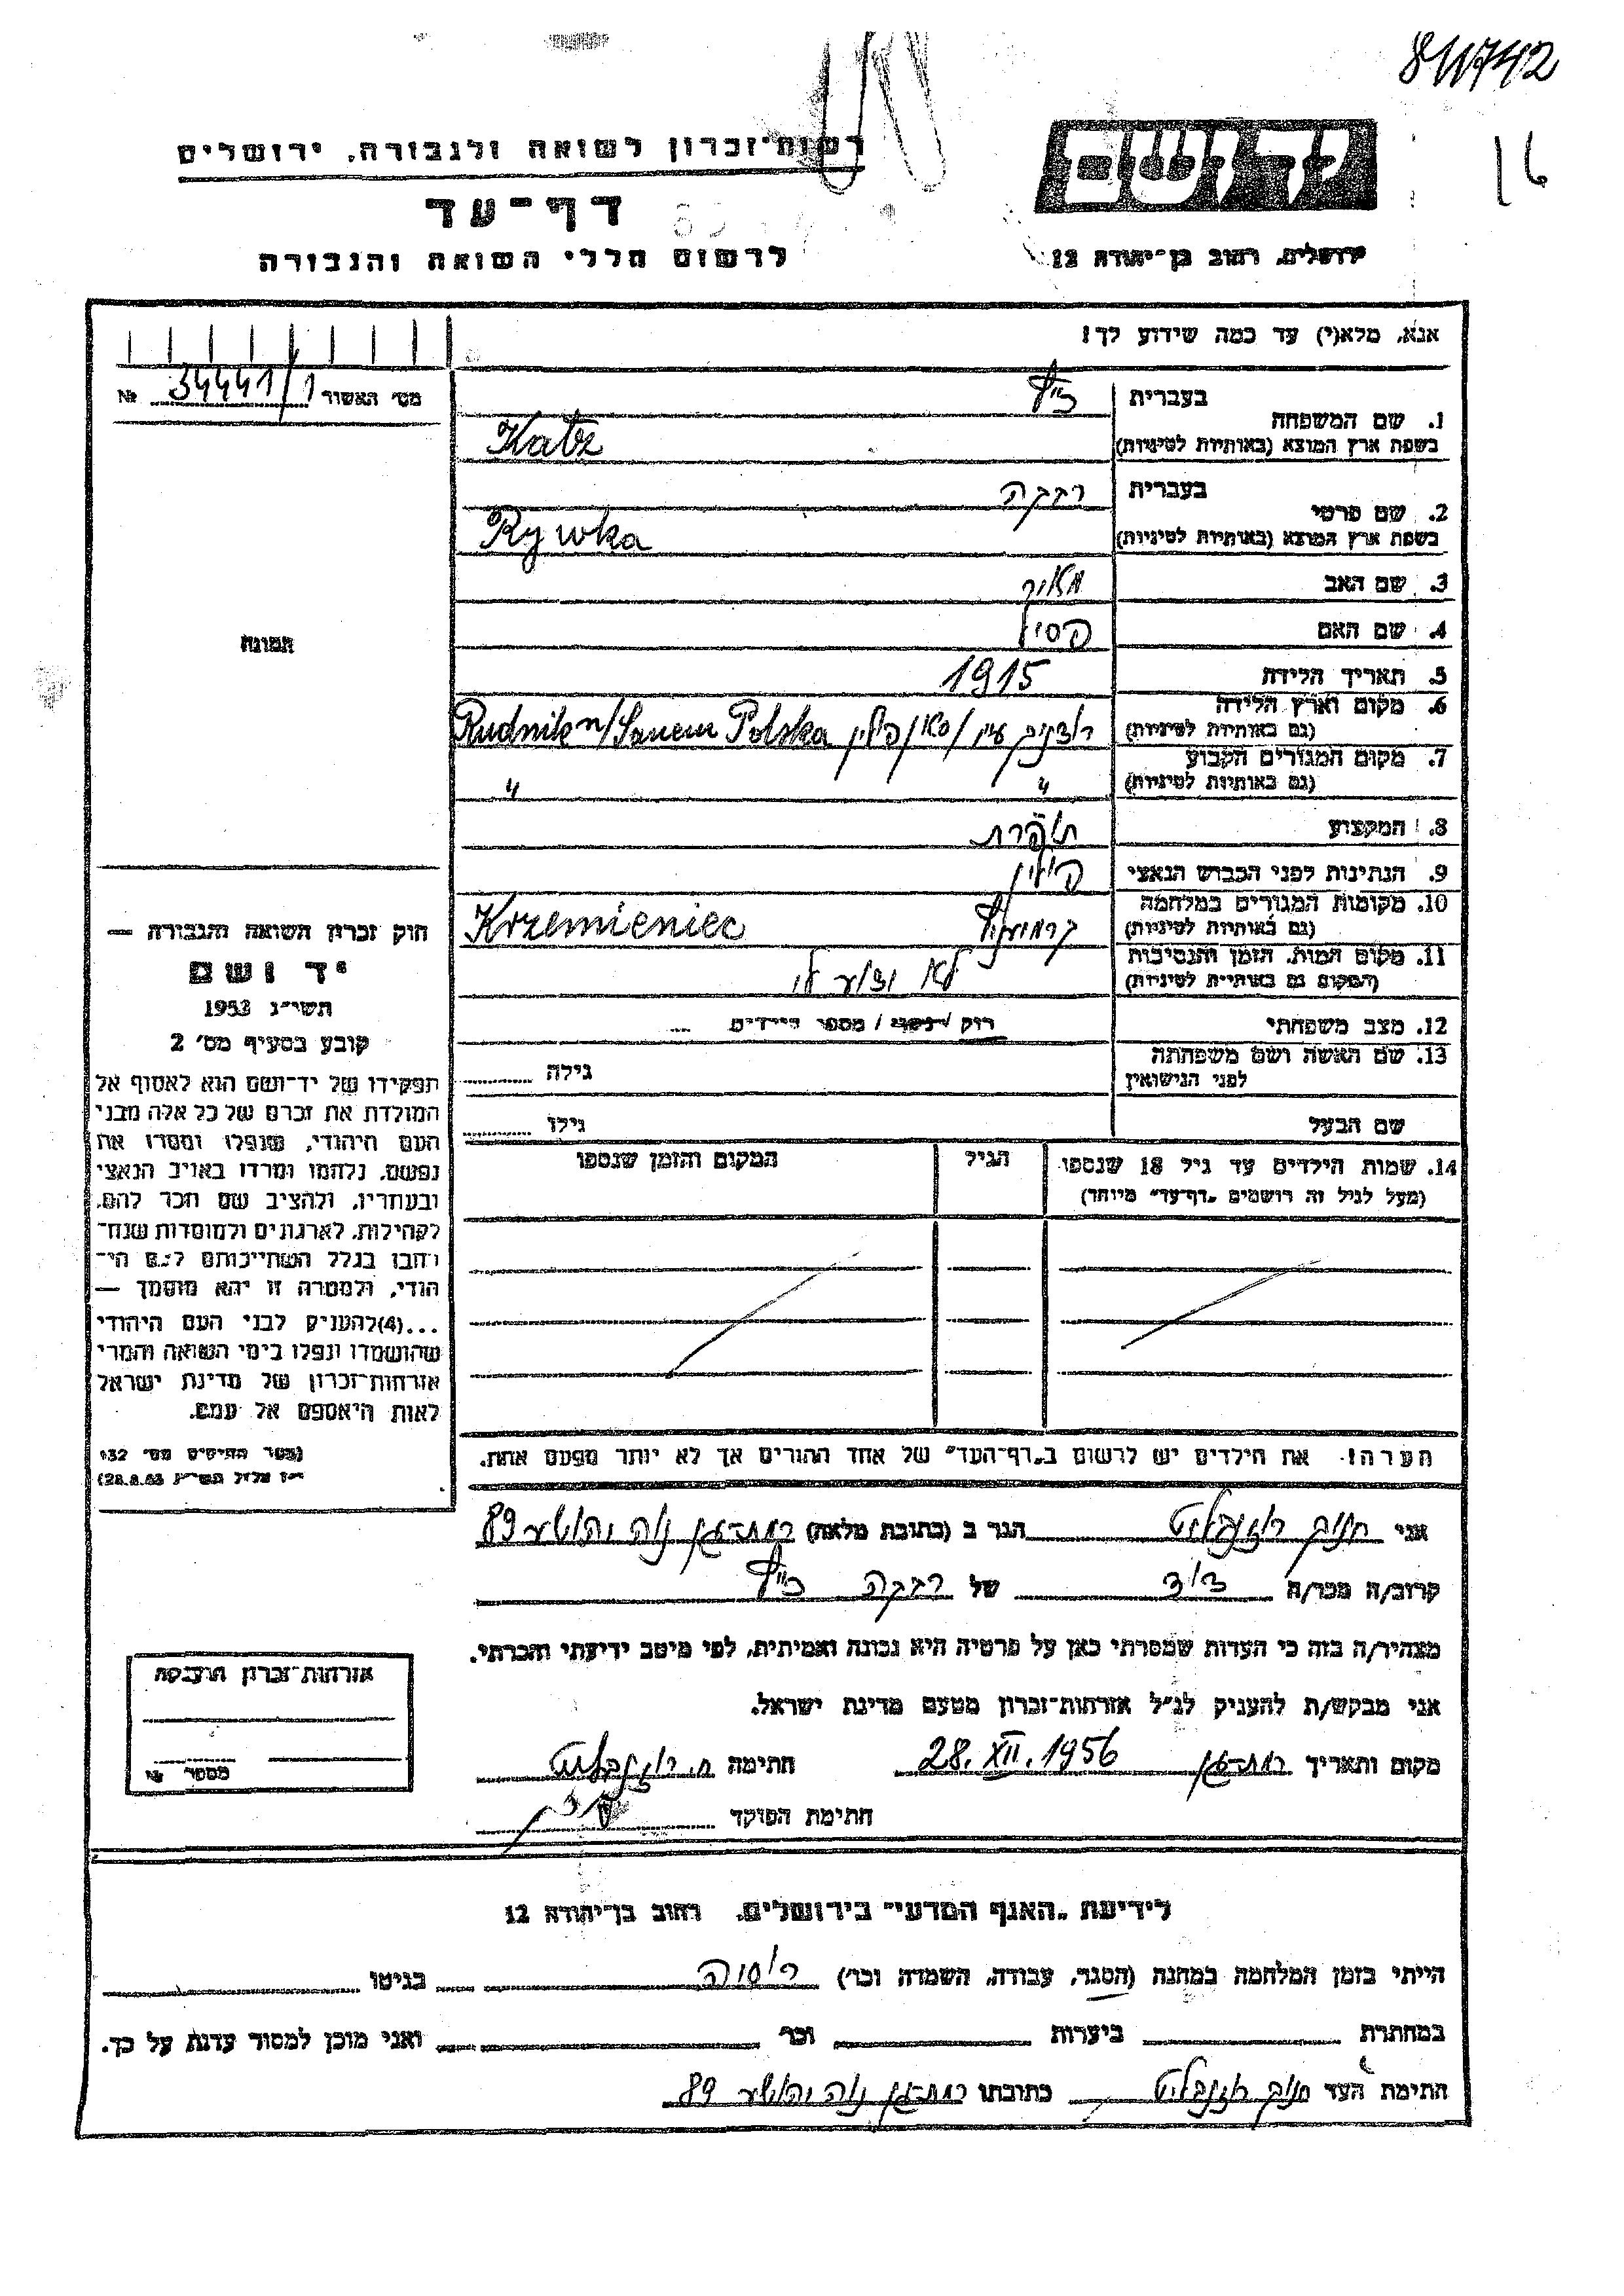 811742
16
רשות־זכרון לשואה ולגבורה, ירושלים
דף־עד
לרשום חללי השואה והגבורה
יד ושם
ירושלים, רחוב בן־יהודה 12
אנא, מלא(י) עד כמה שידוע לך!
מס׳ האשור 34441/1 №
תמונה
1. שם המשפחה
בעברית כ״ץ
בשפת ארץ המוצא (באותיות לטיניות) Katz
2. שם פרטי
בעברית רבקה
בשפת ארץ המוצא (באותיות לטיניות) Rywka
3. שם האב מאיר
4. שם האם
5. תאריך הלידה 1915
6. מקום וארץ הלידה
(גם באותיות לטיניות) רודניק ע״נ/סאן/פולין Rudnik n/Sanem Polska
7. מקום המגורים הקבוע
(גם באותיות לטיניות) " "
8. המקצוע תופרת
9. הנתינות לפני הכבוש הנאצי פולין
10. מקומות המגורים במלחמה
(גם באותיות לטיניות) Krzemieniec
11. מקום המות, הזמן והנסיבות
(המקום גם באותיות לטיניות) לא ידוע לי
12. מצב משפחתי רוק / נשוי / מספר הילדים
13. שם האשה ושם משפחתה
לפני הנישואין
גילה
שם הבעל
גילו
14. שמות הילדים עד גיל 18 שנספו
(מעל לגיל זה רושמים „דף־עד״ מיוחד)
הגיל
המקום והזמן שנספו
הערה: את הילדים יש לרשום ב„דף־העד״ של אחד ההורים אך לא יותר מפעם אחת.
חוק זכרון השואה והגבורה —
יד ושם
תשי״ג 1953
קובע בסעיף מס׳ 2
תפקידו של יד־ושם הוא לאסוף אל
המולדת את זכרם של כל אלה מבני
העם היהודי, שנפלו ומסרו את
נפשם, נלחמו ומרדו באויב הנאצי
ובעוזריו, ולהציב שם וזכר להם,
לקהילות, לארגונים ולמוסדות שנח־
רבו בגלל השתייכותם לעם הי־
הודי, ולמטרה זו יהא מוסמך —
...(4) להעניק לבני העם היהודי
שהושמדו ונפלו בימי השואה והמרי
אזרחות־זכרון של מדינת ישראל
לאות היאספם אל עמם.
(ספר החוקים מס׳ 132
י״ז אלול תשי״ג 28.8.53)
אני חנוך רוזנבליט הגר ב (כתובת מלאה) רמת־גן נוה יהושע 89
קרוב/ה מכר/ה דוד של רבקה כ״ץ
מצהיר/ה בזה כי העדות שמסרתי כאן על פרטיה היא נכונה ואמיתית, לפי מיטב ידיעתי והכרתי.
אני מבקש/ת להעניק לנ״ל אזרחות־זכרון מטעם מדינת ישראל.
מקום ותאריך רמת־גן 28.XII.1956 חתימה ח. רוזנבליט
חתימת הפוקד
אזרחות־זכרון הוענקה
מספר №
לידיעת „האגף המדעי״ בירושלים, רחוב בן־יהודה 12
הייתי בזמן המלחמה במחנה (הסגר, עבודה, השמדה וכר) רוסיה בגיטו
במחתרת ביערות וכר ואני מוכן למסור עדות על כך.
חתימת העד חנוך רוזנבליט כתובתו רמת־גן נוה יהושע 89